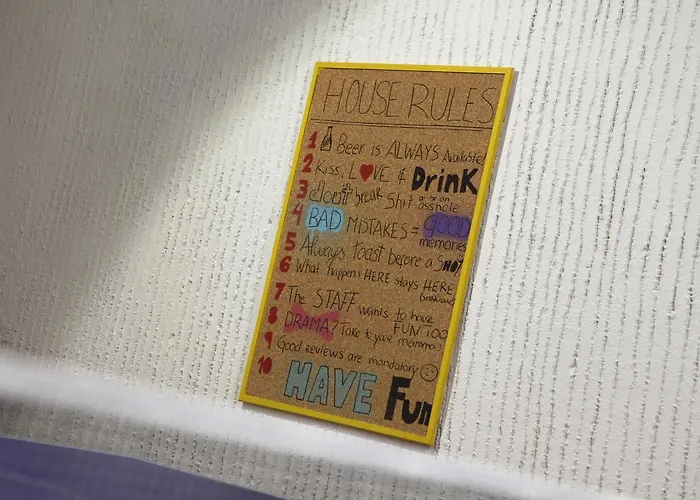 HOUSE RULES
1 Beer is ALWAYS Available!
2 Kiss, L♥VE & DrinK
3 don't break shit or be an asshole
4 BAD MISTAKES = GOOD memories
5 Always toast before a SHOT
6 What happens HERE stays HERE
7 The STAFF wants to have FUN TOO
8 DRAMA? Take to your mamma!
9 Good reviews are mandatory ☺
10 HAVE Fun